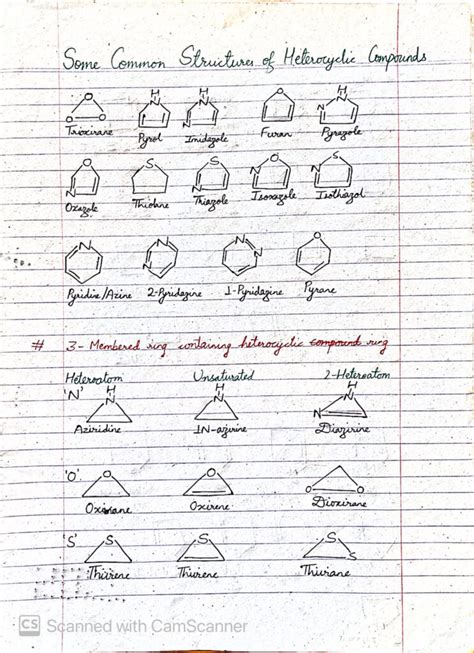 Some Common Structures of Heterocyclic Compounds
O O O H N H N N O H N N
Trioxirane Pyrol Imidazole Furan Pyrazole
O N S S N O N S N
Oxazole Thiolane Thiazole Isoxazole Isothiazol
N N N N N O
Pyridine/Azine 2-Pyridazine 1-Pyridazine Pyrane
# 3-Membered ring containing heterocyclic compound ring
Heteroatom Unsaturated 2-Heteroatom
'N' H N H N H N N
Aziridine 1N-azirine Diazirine
'O' O O O O
Oxirane Oxirene Dioxirane
'S' S S S S
Thiirene Thiirene Thiirane
CS Scanned with CamScanner